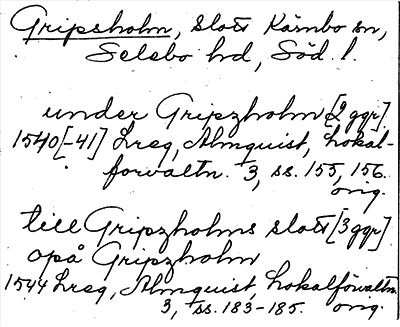 Gripsholm, slott Kärnbo sn,
Selebo hd, Söd. l.
under Gripzholm [2 ggr]
1540[-41] Lreg, Almquist, Lokal-
förvaltn. 3, ss. 155, 156.
orig.
till Gripzholms slott [3 ggr]
opå Gripzholm
1544 Lreg, Almquist, Lokalförvaltn.
3, ss. 183-185. orig.